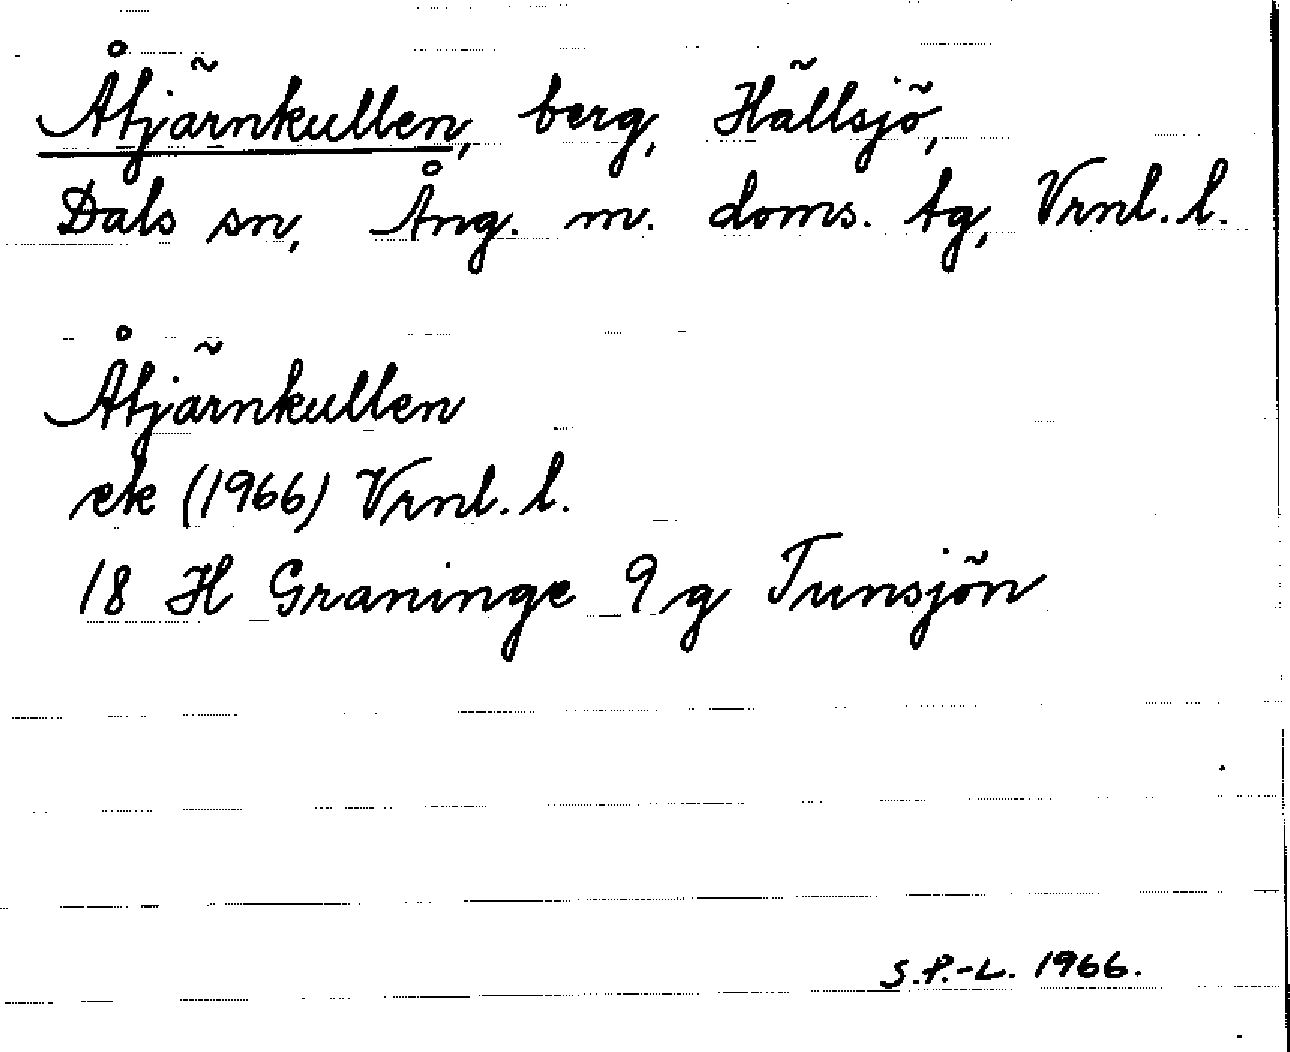 Åtjärnkullen, berg, Hällsjö,
Dals sn, Ång. m. doms. tg, Vrnl. l.
Åtjärnkullen
ek (1966) Vrnl. l.
18 H Graninge 9 g Tunsjön
S.P.-L. 1966.